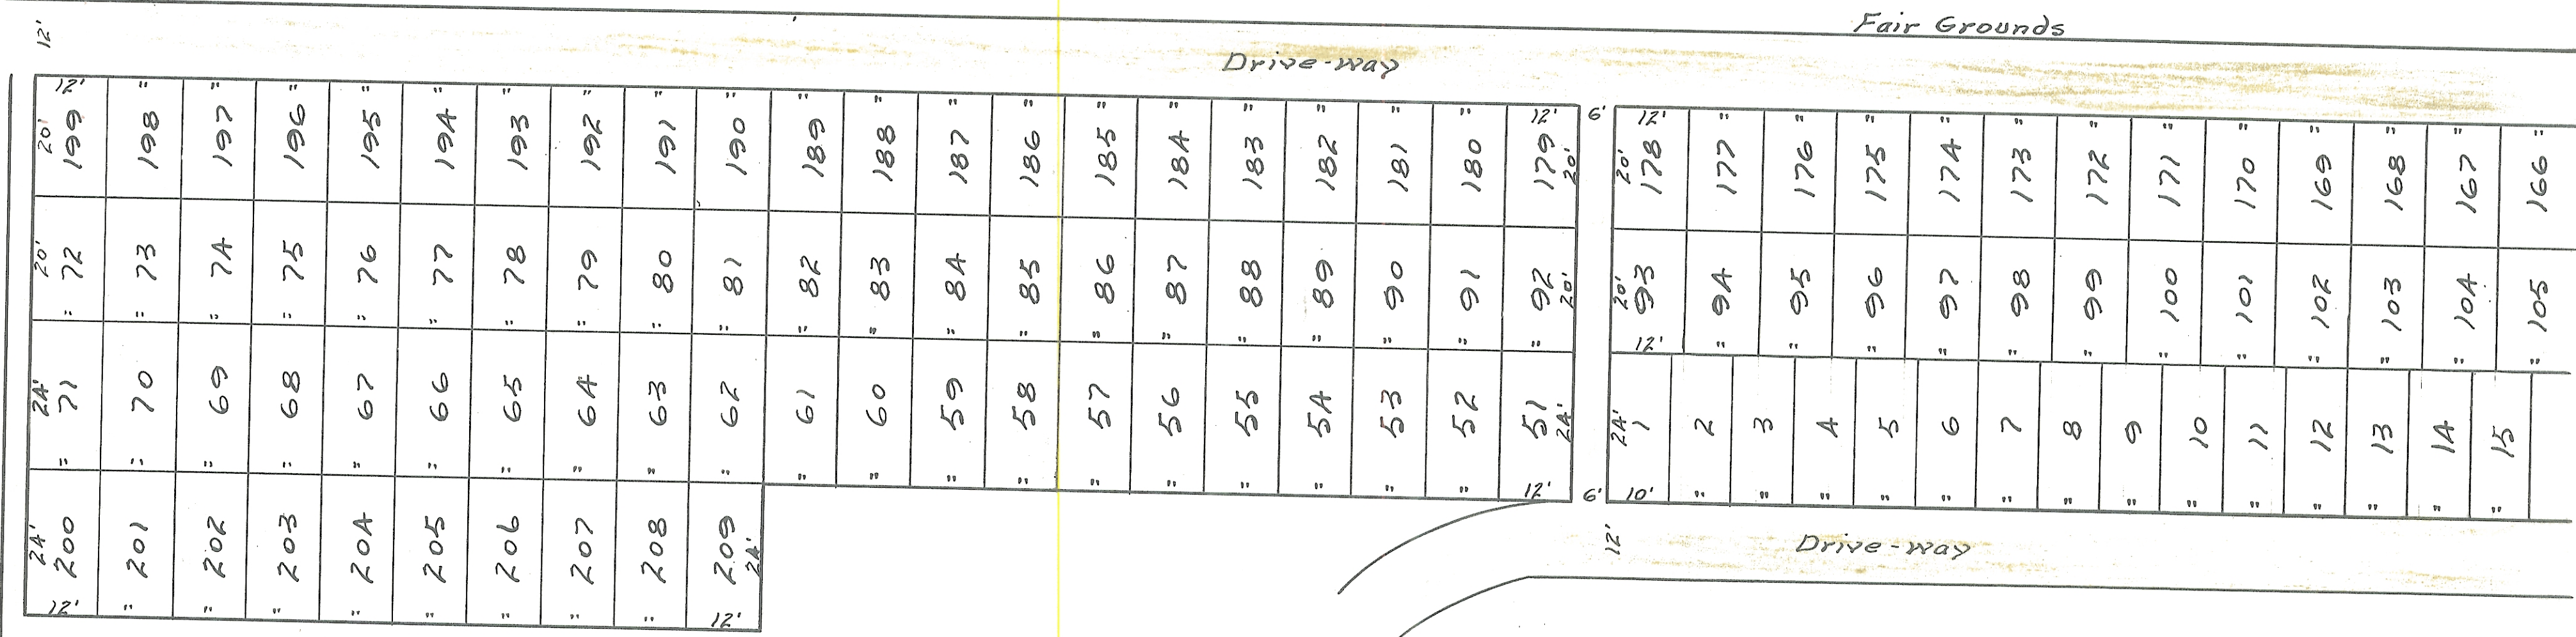 Fair Grounds
12'
Drive-way
12' " " " " " " " " " " " " " " " " " " " 12' 6' 12' " " " " " " " " " " " "
20' 199 198 197 196 195 194 193 192 191 190 189 188 187 186 185 184 183 182 181 180 179 20' 20' 178 177 176 175 174 173 172 171 170 169 168 167 166
20' 72 73 74 75 76 77 78 79 80 81 82 83 84 85 86 87 88 89 90 91 92 20' 20' 93 94 95 96 97 98 99 100 101 102 103 104 105
" " " " " " " " " " " " " " " " " " " " " 12' " " " " " " " " " " " "
24' 71 70 69 68 67 66 65 64 63 62 61 60 59 58 57 56 55 54 53 52 51 24' 24' 1 2 3 4 5 6 7 8 9 10 11 12 13 14 15
" " " " " " " " " " " " " " " " " " " " 12' 6' 10' " " " " " " " " " " " " " "
24' 200 201 202 203 204 205 206 207 208 209 24'
12' " " " " " " " " 12'
12'
Drive-way